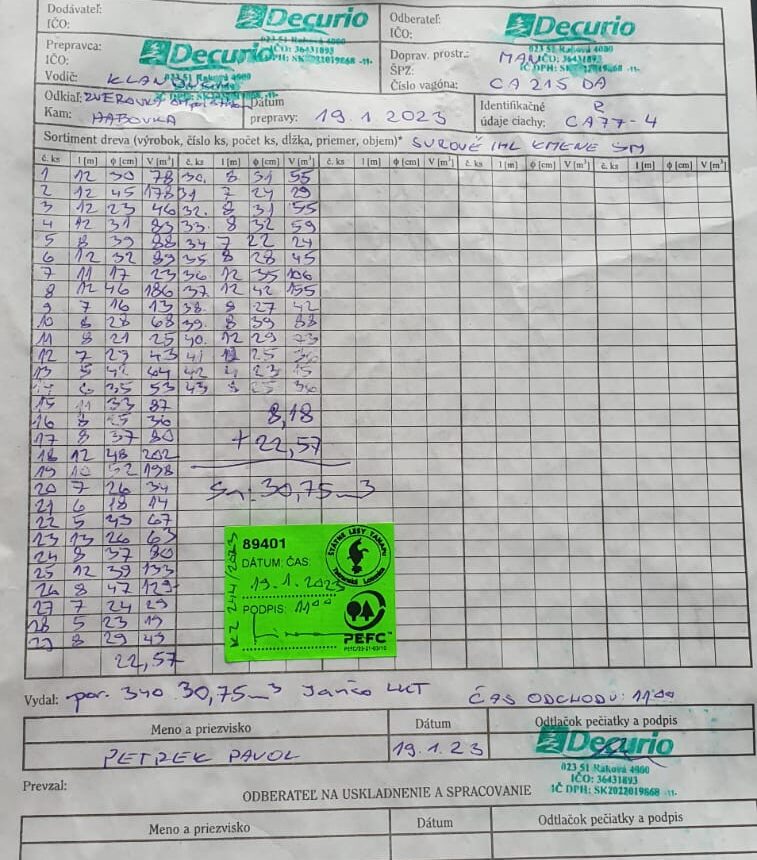 Dodávateľ:
IČO:
Decurio
Odberateľ:
IČO:
Decurio
023 51 Raková 4900
IČO: 36431893
IČ DPH: SK2022019868 -11-
Prepravca:
IČO:
Decurio
023 51 Raková 4900
IČO: 36431893
DPH: SK2022019868 -11-
Doprav. prostr.: MAN
ŠPZ:
Vodič:
Číslo vagóna: CA 215 DA
Odkiaľ: ZVEROVKA
Kam: HABOVKA
Dátum
prepravy: 19.1.2023
Identifikačné
údaje ciachy: CA77-4
Sortiment dreva (výrobok, číslo ks, počet ks, dĺžka, priemer, objem)* SUROVÉ IHL KMENE SM
č. ks l [m] ϕ [cm] V [m³] č. ks l [m] ϕ [cm] V [m³] č. ks l [m] ϕ [cm] V [m³] č. ks l [m] ϕ [cm] V [m³] č. ks l [m] ϕ [cm] V [m³]
1 12 30 78 30. 8 31 55
2 12 45 178 31 7 24 29
3 12 23 46 32. 8 31 55
4 12 31 83 33. 8 32 59
5 8 39 88 34 7 22 24
6 12 32 89 35 8 28 45
7 11 17 23 36 12 35 106
8 12 46 186 37 12 42 155
9 7 16 13 38. 8 27 42
10 8 28 68 39. 8 39 88
11 8 21 25 40. 12 29 73
12 7 29 43 41 25 36
13 5 42 64 42 23 15
6 35 53 43 8 25 36
15 11 33 87
16 8 25 36
17 8 37 80
18 12 48 202
19 10 52 198
20 7 26 34
21 6 18 14
22 5 43 67
23 13 26 63
24 8 37 80
25 12 39 133
26 8 47 129
27 7 24 29
28 5 23 19
29 8 29 49
22,57
8,18
+ 22,57
30,75 m3
89401
DÁTUM: ČAS:
19.1.2023
PODPIS: 11⁰⁰
KZ 244/2023
ŠTÁTNE LESY TANAPU
Tatranská Lomnica
PEFC™
Vydal: por. 340 30,75 m3 Jančo LKT ČAS ODCHODU: 11⁰⁰
Meno a priezvisko Dátum Odtlačok pečiatky a podpis
PETREK PAVOL 19.1.23
Decurio
023 51 Raková 4900
IČO: 36431893
IČ DPH: SK2022019868 -11-
Prevzal:
ODBERATEĽ NA USKLADNENIE A SPRACOVANIE
Meno a priezvisko Dátum Odtlačok pečiatky a podpis